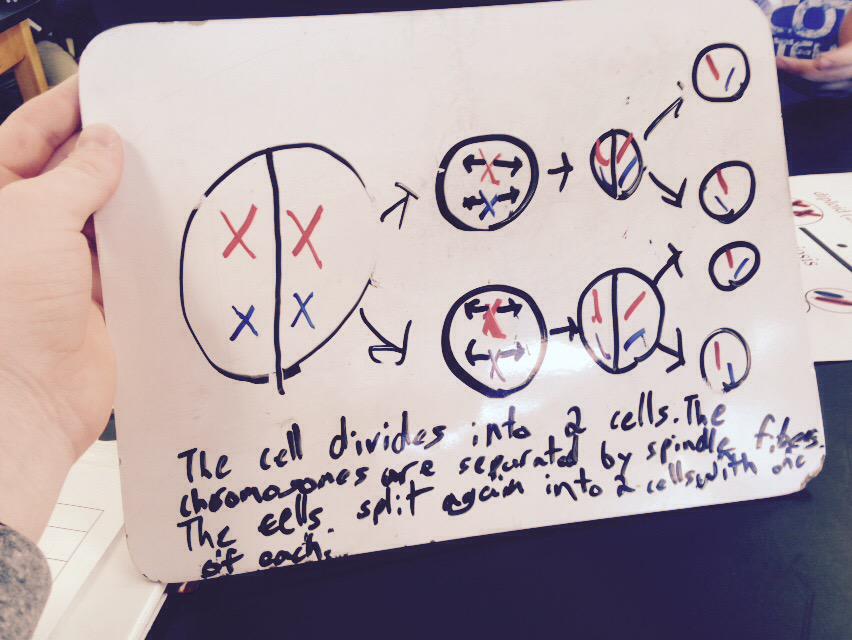 The cell divides into 2 cells. The
chromosomes are separated by spindle fibers.
The cells split again into 2 cells with one
of each.